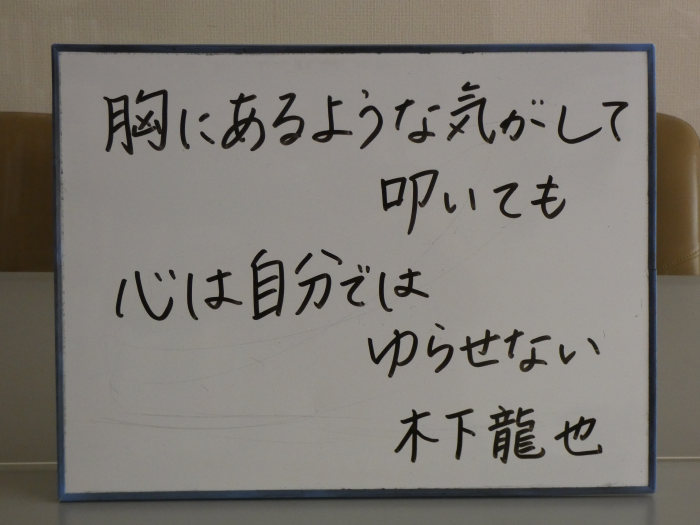 胸にあるような気がして
叩いても
心は自分では
ゆらせない
木下龍也